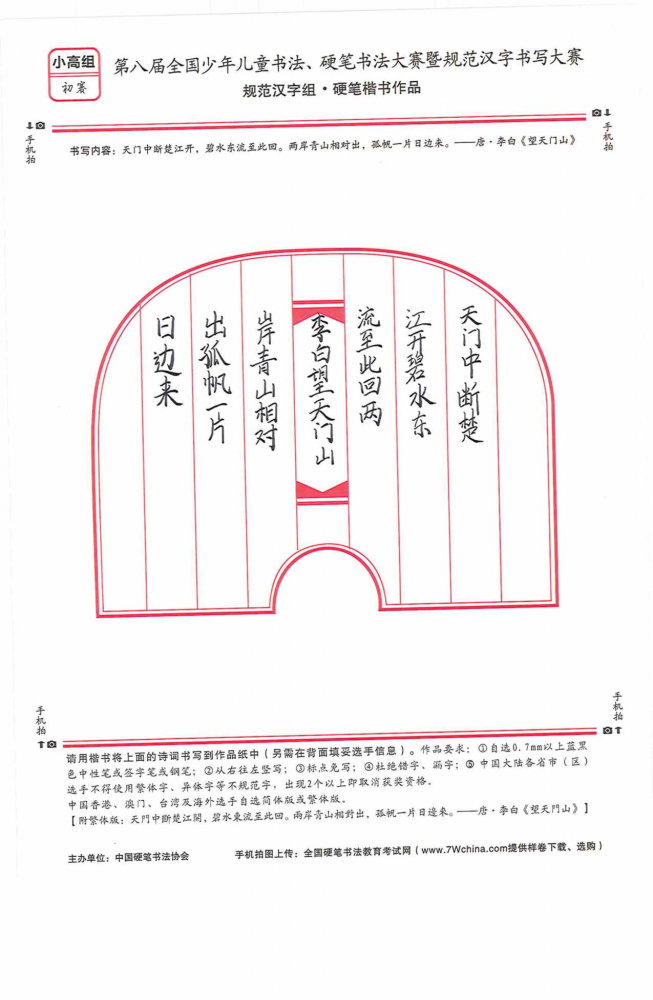 小高组
初赛
第八届全国少年儿童书法、硬笔书法大赛暨规范汉字书写大赛
规范汉字组·硬笔楷书作品
手机拍
手机拍
书写内容：天门中断楚江开，碧水东流至此回。两岸青山相对出，孤帆一片日边来。——唐·李白《望天门山》
天门中断楚
江开碧水东
流至此回两
李白望天门山
岸青山相对
出孤帆一片
日边来
手机拍
手机拍
请用楷书将上面的诗词书写到作品纸中（另需在背面填妥选手信息）。作品要求：①自选0.7mm以上蓝黑
色中性笔或签字笔或钢笔；②从右往左竖写；③标点免写；④杜绝错字、漏字；⑤中国大陆各省市（区）
选手不得使用繁体字、异体字等不规范字，出现2个以上即取消获奖资格。
中国香港、澳门、台湾及海外选手自选简体版或繁体版。
【附繁体版：天門中断楚江開，碧水東流至此回。兩岸青山相對出，孤帆一片日邊来。——唐·李白《望天門山》】
主办单位：中国硬笔书法协会
手机拍图上传：全国硬笔书法教育考试网（www.7Wchina.com提供样卷下载、选购）